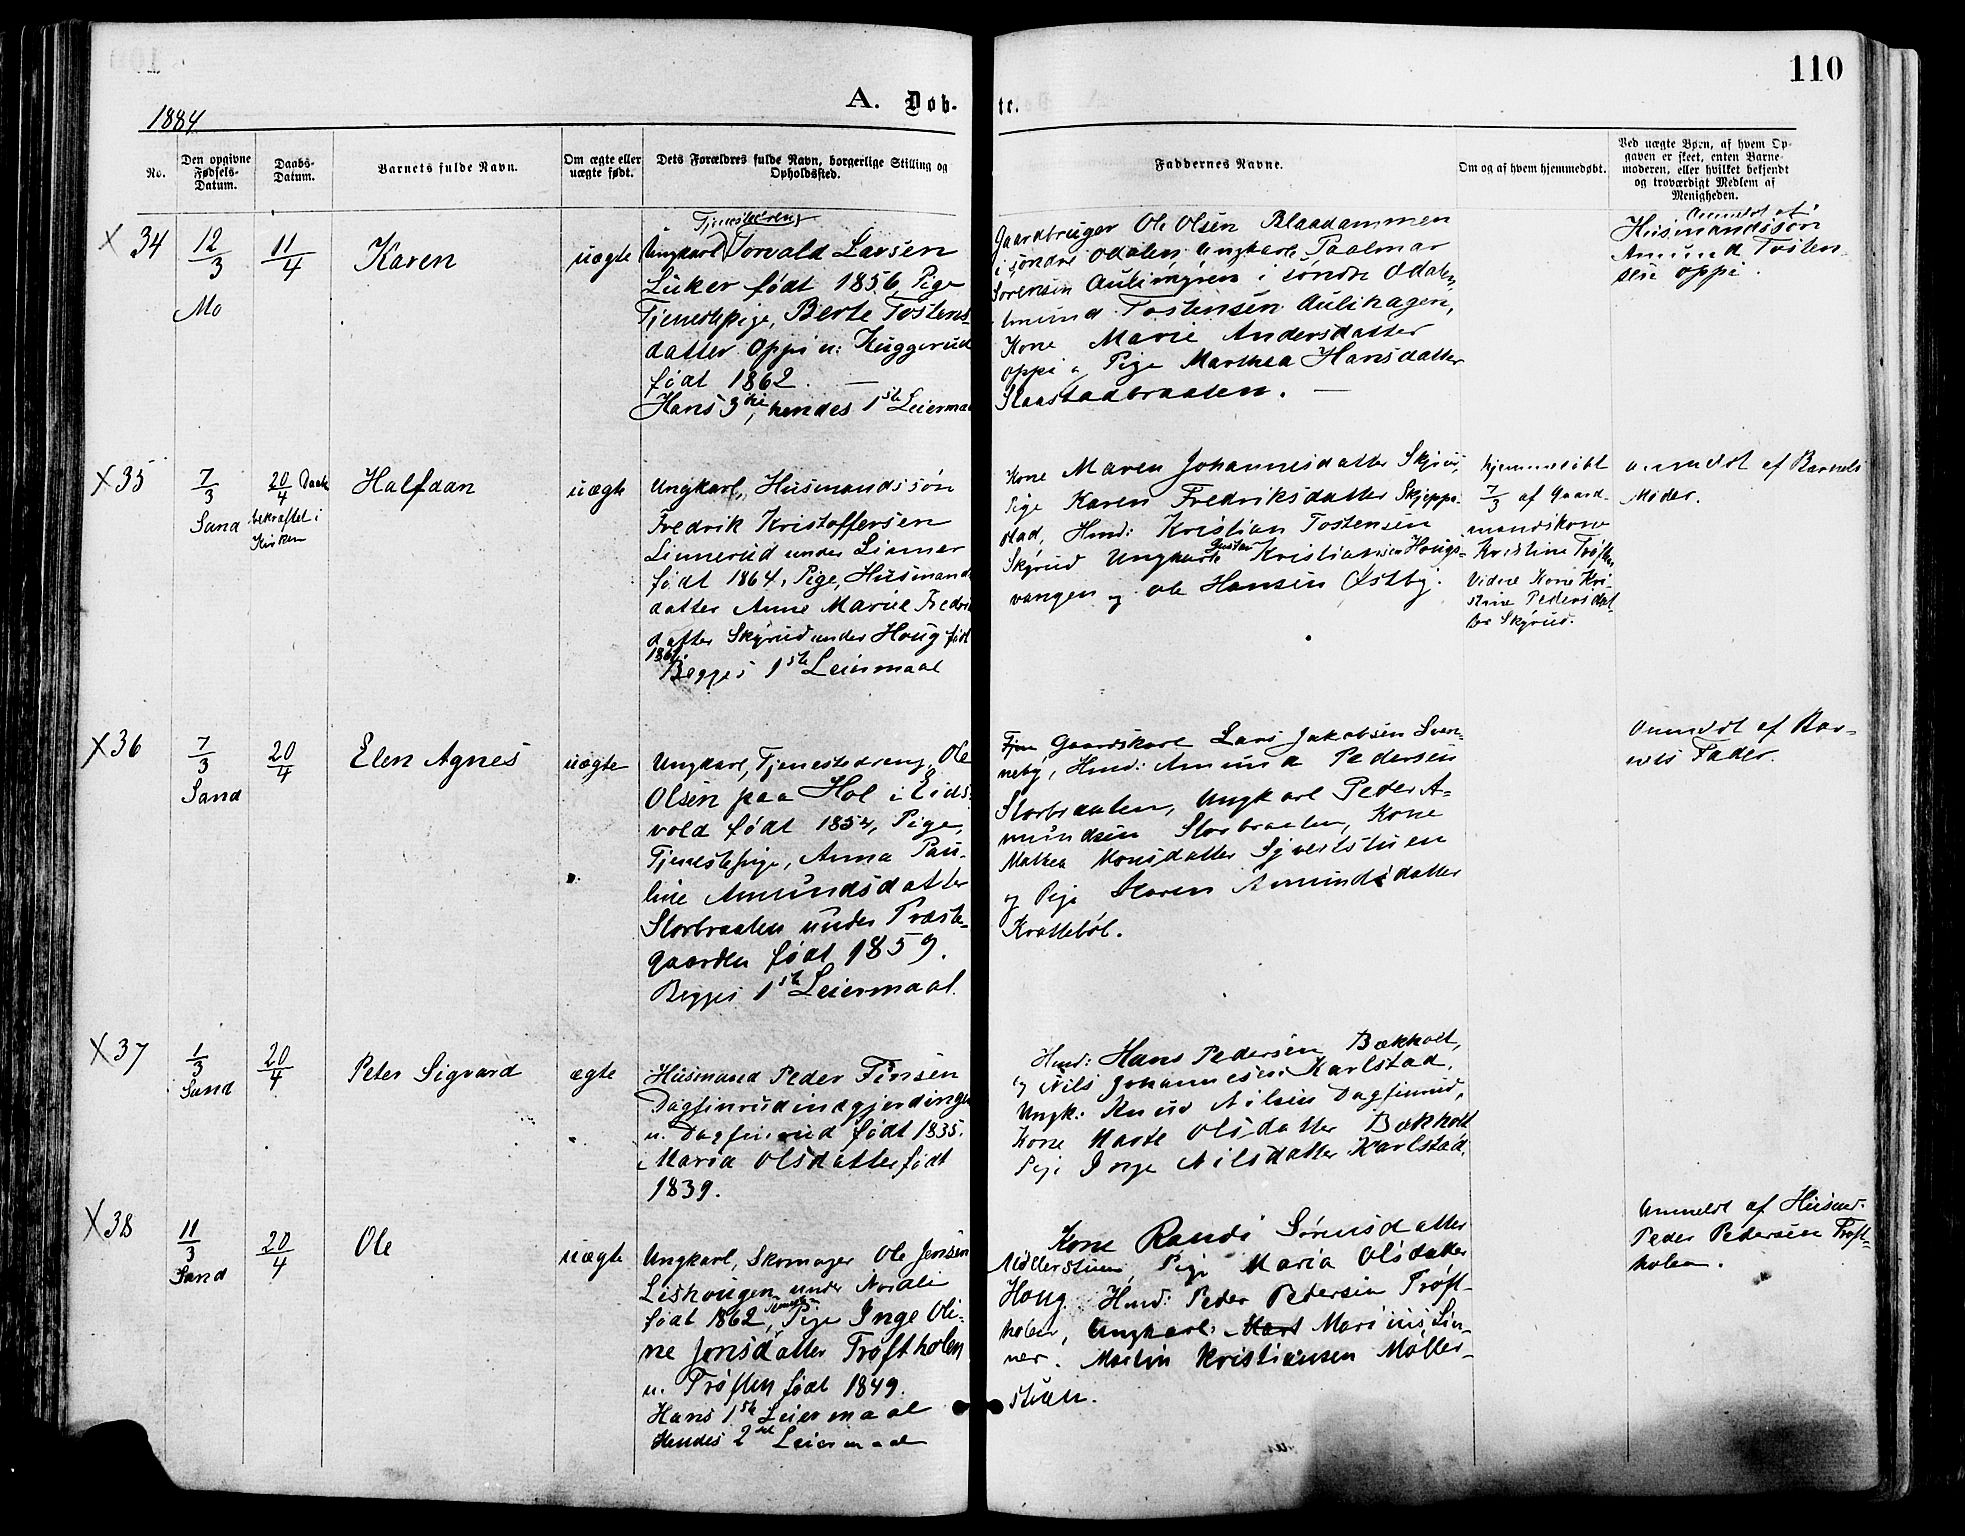 110
1884
A. Døb-
te.
No.
Den opgivne
Fødsels-
Datum.
Daabs-
Datum.
Barnets fulde Navn.
Om ægte eller
uægte født.
Dets Forældres fulde Navn, borgerlige Stilling og
Opholdssted.
Faddernes Navne.
Om og af hvem hjemmedøbt.
Ved uægte Børn, af hvem Op-
gaven er skeet, enten Barne-
moderen, eller hvilket bekjendt
og troværdigt Medlem af
Menigheden.
X 34
12/3
Mo
11/4
Karen
uægte
Tjenestedreng
Ungkarl Torvald Larsen
født 1856, Pige
Tjenestepige, Berte Tostens-
datter Oppi u: Kuggerud
født 1862. —
Hans 3die, hendes 1ste Leiermaal
Gaardbruger Ole Olsen Blaadammen
i søndre Odalen, Ungkarl Paalmar
Sørensen Aulimyren i søndre Odalen,
Amund Tostensen Aulihagen,
Kone Marie Andersdatter
Oppi og Pige Marthea Hansdatter
Slaastadbraaten. —
Anmeldt af
Husmandssøn
Amund Tosten-
sen Oppi.
X 35
7/3
Sand
20/4 Daab
bekræftet i
Kirken
Halfdan
uægte
Ungkarl, Husmandssøn
Fredrik Kristoffersen
Linnerud under Linner
født 1864, Pige, Husmands
datter Anne Marie Fredriks
datter Skyrud under Houg født
Begges 1ste Leiermaal
Kone Maren Johannesdatter Skyrud,
Pige Karen Fredriksdatter Skjeppe-
stad, Hmd: Kristian Tostensen
Skyrud Ungkarle Gustav Kristiansen Hougs-
vangen og Ole Hansen Østby.
hjemmedøbt
7/3 af Gaard-
mandskone
Kristine Trøften
Vidne Kone Kri-
stine Pedersdat-
ter Skyrud.
anmeldt af Barnets
Moder.
X 36
7/3
Sand
20/4
Elen Agnes
uægte
Ungkarl, Tjenestedreng, Ole
Olsen paa Hol i Eids-
vold født 1854, Pige,
Tjenestepige, Anna Pau-
line Amundsdatter
Storbraaten under Præste-
gaarden født 1859.
Begges 1ste Leiermaal.
Gaardskarl Lars Jakobsen Sven-
neby, Hmd: Amund Pedersen
Storbraaten, Ungkarl Peder A-
mundsen Storbraaten, Kone
Mathea Monsdatter Syverstuen
og Pige Karen Amundsdatter
Krattebøl.
Anmeldt af Bar-
nets Fader.
X 37
1/3
Sand
20/4
Peter Sigvard
ægte
Husmand Peder Finsen
Dagfinrudindgjerdingen
u. Dagfinrud født 1835.
Maria Olsdatter født
1839.
Hmd: Hans Pedersen Bækholt,
og Nils Johannesen Karlstad,
Ungk: Knud Nilsen Dagfinrud,
Kone Marte Olsdatter Bækholt
Pige Inge Nilsdatter Karlstad.
X 38
11/3
Sand
20/4
Ole
uægte
Ungkarl, Skomager Ole Jensen
Leshougen under Nordli
født 1862, Pige Inge Oli-
ne Jonsdatter Trøftholen
u. Trøften født 1849.
Hans 1ste Leiermaal
Hendes 2det Leiermaal
Kone Randi Sørensdatter
Møllerstuen, Pige Maria Olsdatter
Houg. Hmd: Peder Pedersen Trøft-
holen, Ungkarl: Mart Marinus Lin-
ner. Martin Kristiansen Møller-
stuen.
Anmeldt af Husmd:
Peder Pedersen Trøft-
holen.